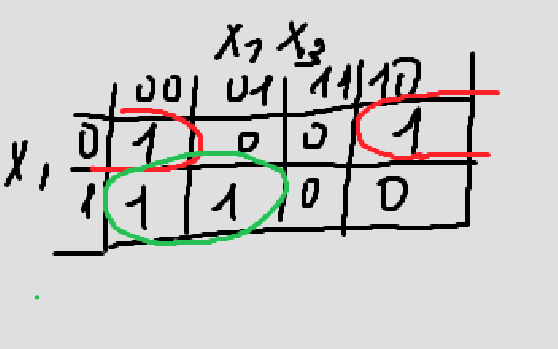 X₂ X₃
00 01 11 10
0 1 0 0 1
X₁
1 1 1 0 0